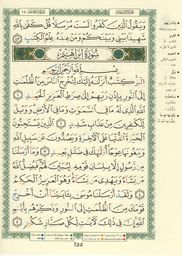 وَيَقُولُ الَّذِينَ كَفَرُوا لَسْتَ مُرْسَلًا قُلْ كَفَىٰ بِاللَّهِ
شَهِيدًا بَيْنِي وَبَيْنَكُمْ وَمَنْ عِندَهُ عِلْمُ الْكِتَٰبِ ٤٣
سُورَةُ إِبْرَاهِيمَ
بِسْمِ اللَّهِ الرَّحْمَٰنِ الرَّحِيمِ
الٓر كِتَٰبٌ أَنزَلْنَٰهُ إِلَيْكَ لِتُخْرِجَ النَّاسَ مِنَ الظُّلُمَٰتِ
إِلَى النُّورِ بِإِذْنِ رَبِّهِمْ إِلَىٰ صِرَٰطِ الْعَزِيزِ الْحَمِيدِ ١
اللَّهِ الَّذِي لَهُ مَا فِي السَّمَٰوَٰتِ وَمَا فِي الْأَرْضِ وَوَيْلٌ
لِّلْكَٰفِرِينَ مِنْ عَذَابٍ شَدِيدٍ ٢ الَّذِينَ يَسْتَحِبُّونَ
الْحَيَوٰةَ الدُّنْيَا عَلَى الْءَاخِرَةِ وَيَصُدُّونَ عَن سَبِيلِ اللَّهِ
وَيَبْغُونَهَا عِوَجًا أُولَٰئِكَ فِي ضَلَٰلٍ بَعِيدٍ ٣ وَمَا أَرْسَلْنَا
مِن رَّسُولٍ إِلَّا بِلِسَانِ قَوْمِهِ لِيُبَيِّنَ لَهُمْ فَيُضِلُّ اللَّهُ
مَن يَشَاءُ وَيَهْدِي مَن يَشَاءُ وَهُوَ الْعَزِيزُ الْحَكِيمُ
٤ وَلَقَدْ أَرْسَلْنَا مُوسَىٰ بِـَٔايَٰتِنَا أَنْ أَخْرِجْ
قَوْمَكَ مِنَ الظُّلُمَٰتِ إِلَى النُّورِ وَذَكِّرْهُم بِأَيَّىٰمِ
اللَّهِ إِنَّ فِي ذَٰلِكَ لَءَايَٰتٍ لِّكُلِّ صَبَّارٍ شَكُورٍ ٥
٢٥٥